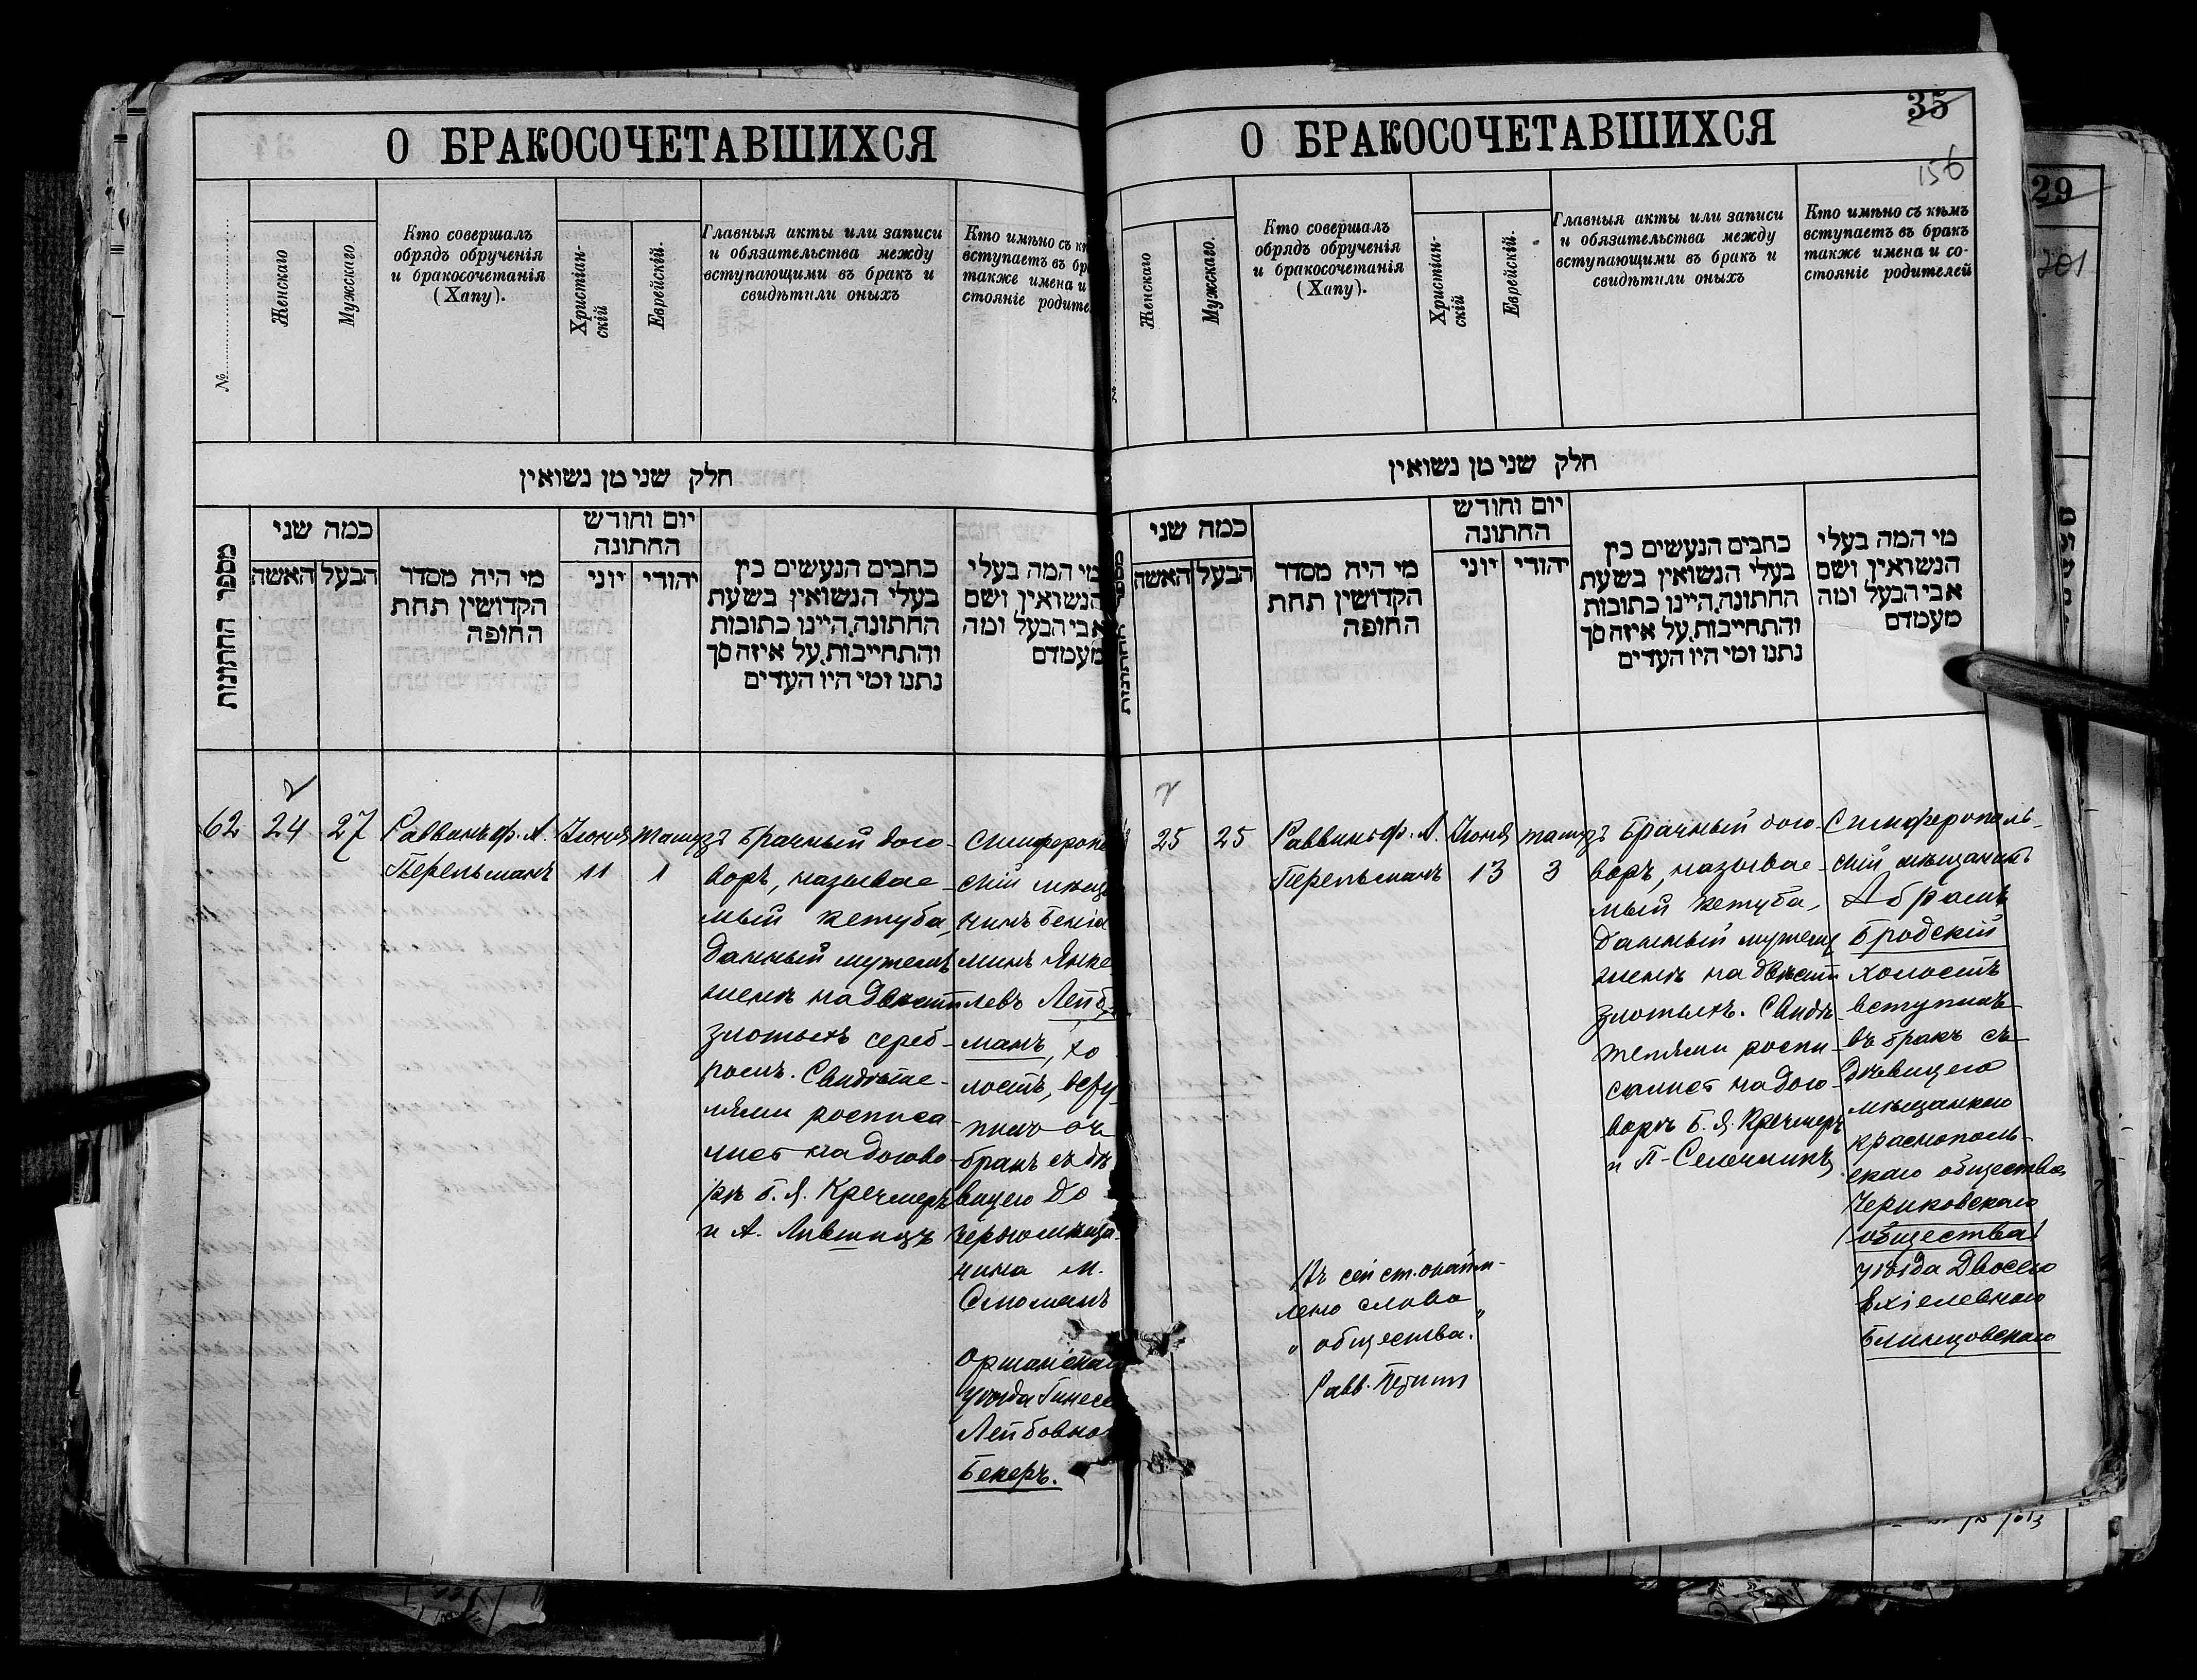 О БРАКОСОЧЕТАВШИХСЯ
№
Женскаго
Мужскаго
Кто совершалъ
обрядъ обрученія
и бракосочетанія
(Хапу).
Христіан-
скій
Еврейскій.
Главныя акты или записи
и обязательства между
вступающими въ бракъ и
свидѣтили оныхъ
Кто имѣно съ
вступаетъ въ
также имена и
стояніе
חלק שני מן נשואין
מספר החתונות
כמה שני
האשה
הבעל
מי היה מסדר
הקדושין תחת
החופה
יום וחודש
החתונה
יוני
יהודי
כתבים הנעשים בין
בעלי הנשואין בשעת
החתונה, היינו כתובות
והתחייבות, על איזה סך
נתנו ומי היו העדים
מי המה בעלי
הנשואין ושם
אבי הבעל ומה
מעמדם
62
24
27
Раввинъ Ф. А.
Перельманъ
Іюня
11
Тамузъ
1
Брачный дого-
воръ, называе-
мый кетуба,
данный мужемъ
женѣ на двѣсти
злотыхъ сереб-
ромъ. Свидѣте-
лями росписа-
лись на догово-
рѣ Б. Я. Кречмеръ
и А. Лившицъ
Симферопо
скій мѣща
нинъ Бенiа
минъ Янке
левъ Лейб
манъ, хо
лостъ, всту
пилъ въ
бракъ съ дѣ
вицею до
черью мѣща-
нина м.
Смолянъ
Оршанскаг
уѣзда Гинесе
Лейбовно
Бекеръ.
О БРАКОСОЧЕТАВШИХСЯ
35
156
Женскаго
Мужскаго.
Кто совершалъ
обрядъ обрученія
и бракосочетанія
(Хапу).
Христіан-
скій
Еврейскій.
Главныя акты или записи
и обязательства между
вступающими въ бракъ и
свидѣтили оныхъ
Кто имѣно съ кѣмъ
вступаетъ въ бракъ
также имена и со-
стояніе родителей
חלק שני מן נשואין
כמה שני
האשה
הבעל
מי היה מסדר
הקדושין תחת
החופה
יום וחודש
החתונה
יוני
יהודי
כתבים הנעשים בין
בעלי הנשואין בשעת
החתונה, היינו כתובות
והתחייבות, על איזה סך
נתנו ומי היו העדים
מי המה בעלי
הנשואין ושם
אבי הבעל ומה
מעמדם
25
25
Раввинъ Ф. А.
Перельманъ
Іюня
13
Тамузъ
3
Брачный дого-
воръ, называе-
мый кетуба,
данный мужемъ
женѣ на двѣсти
злотыхъ. Свидѣ-
телями роспи-
сались на дого-
ворѣ Б. Я. Кречмеръ
и П.
Симферополь-
скій мѣщанинъ
Абрамъ
Бродскій
холостъ
вступилъ
въ бракъ съ
дѣвицею
мѣщанкою
краснополь-
скаго общества
Чериковскаго
(общества)
уѣзда Двосею
Ехіелевною
Блинцовскою
Въ сей ст. окайм-
лено слово
„общества."
Равв.
29
201